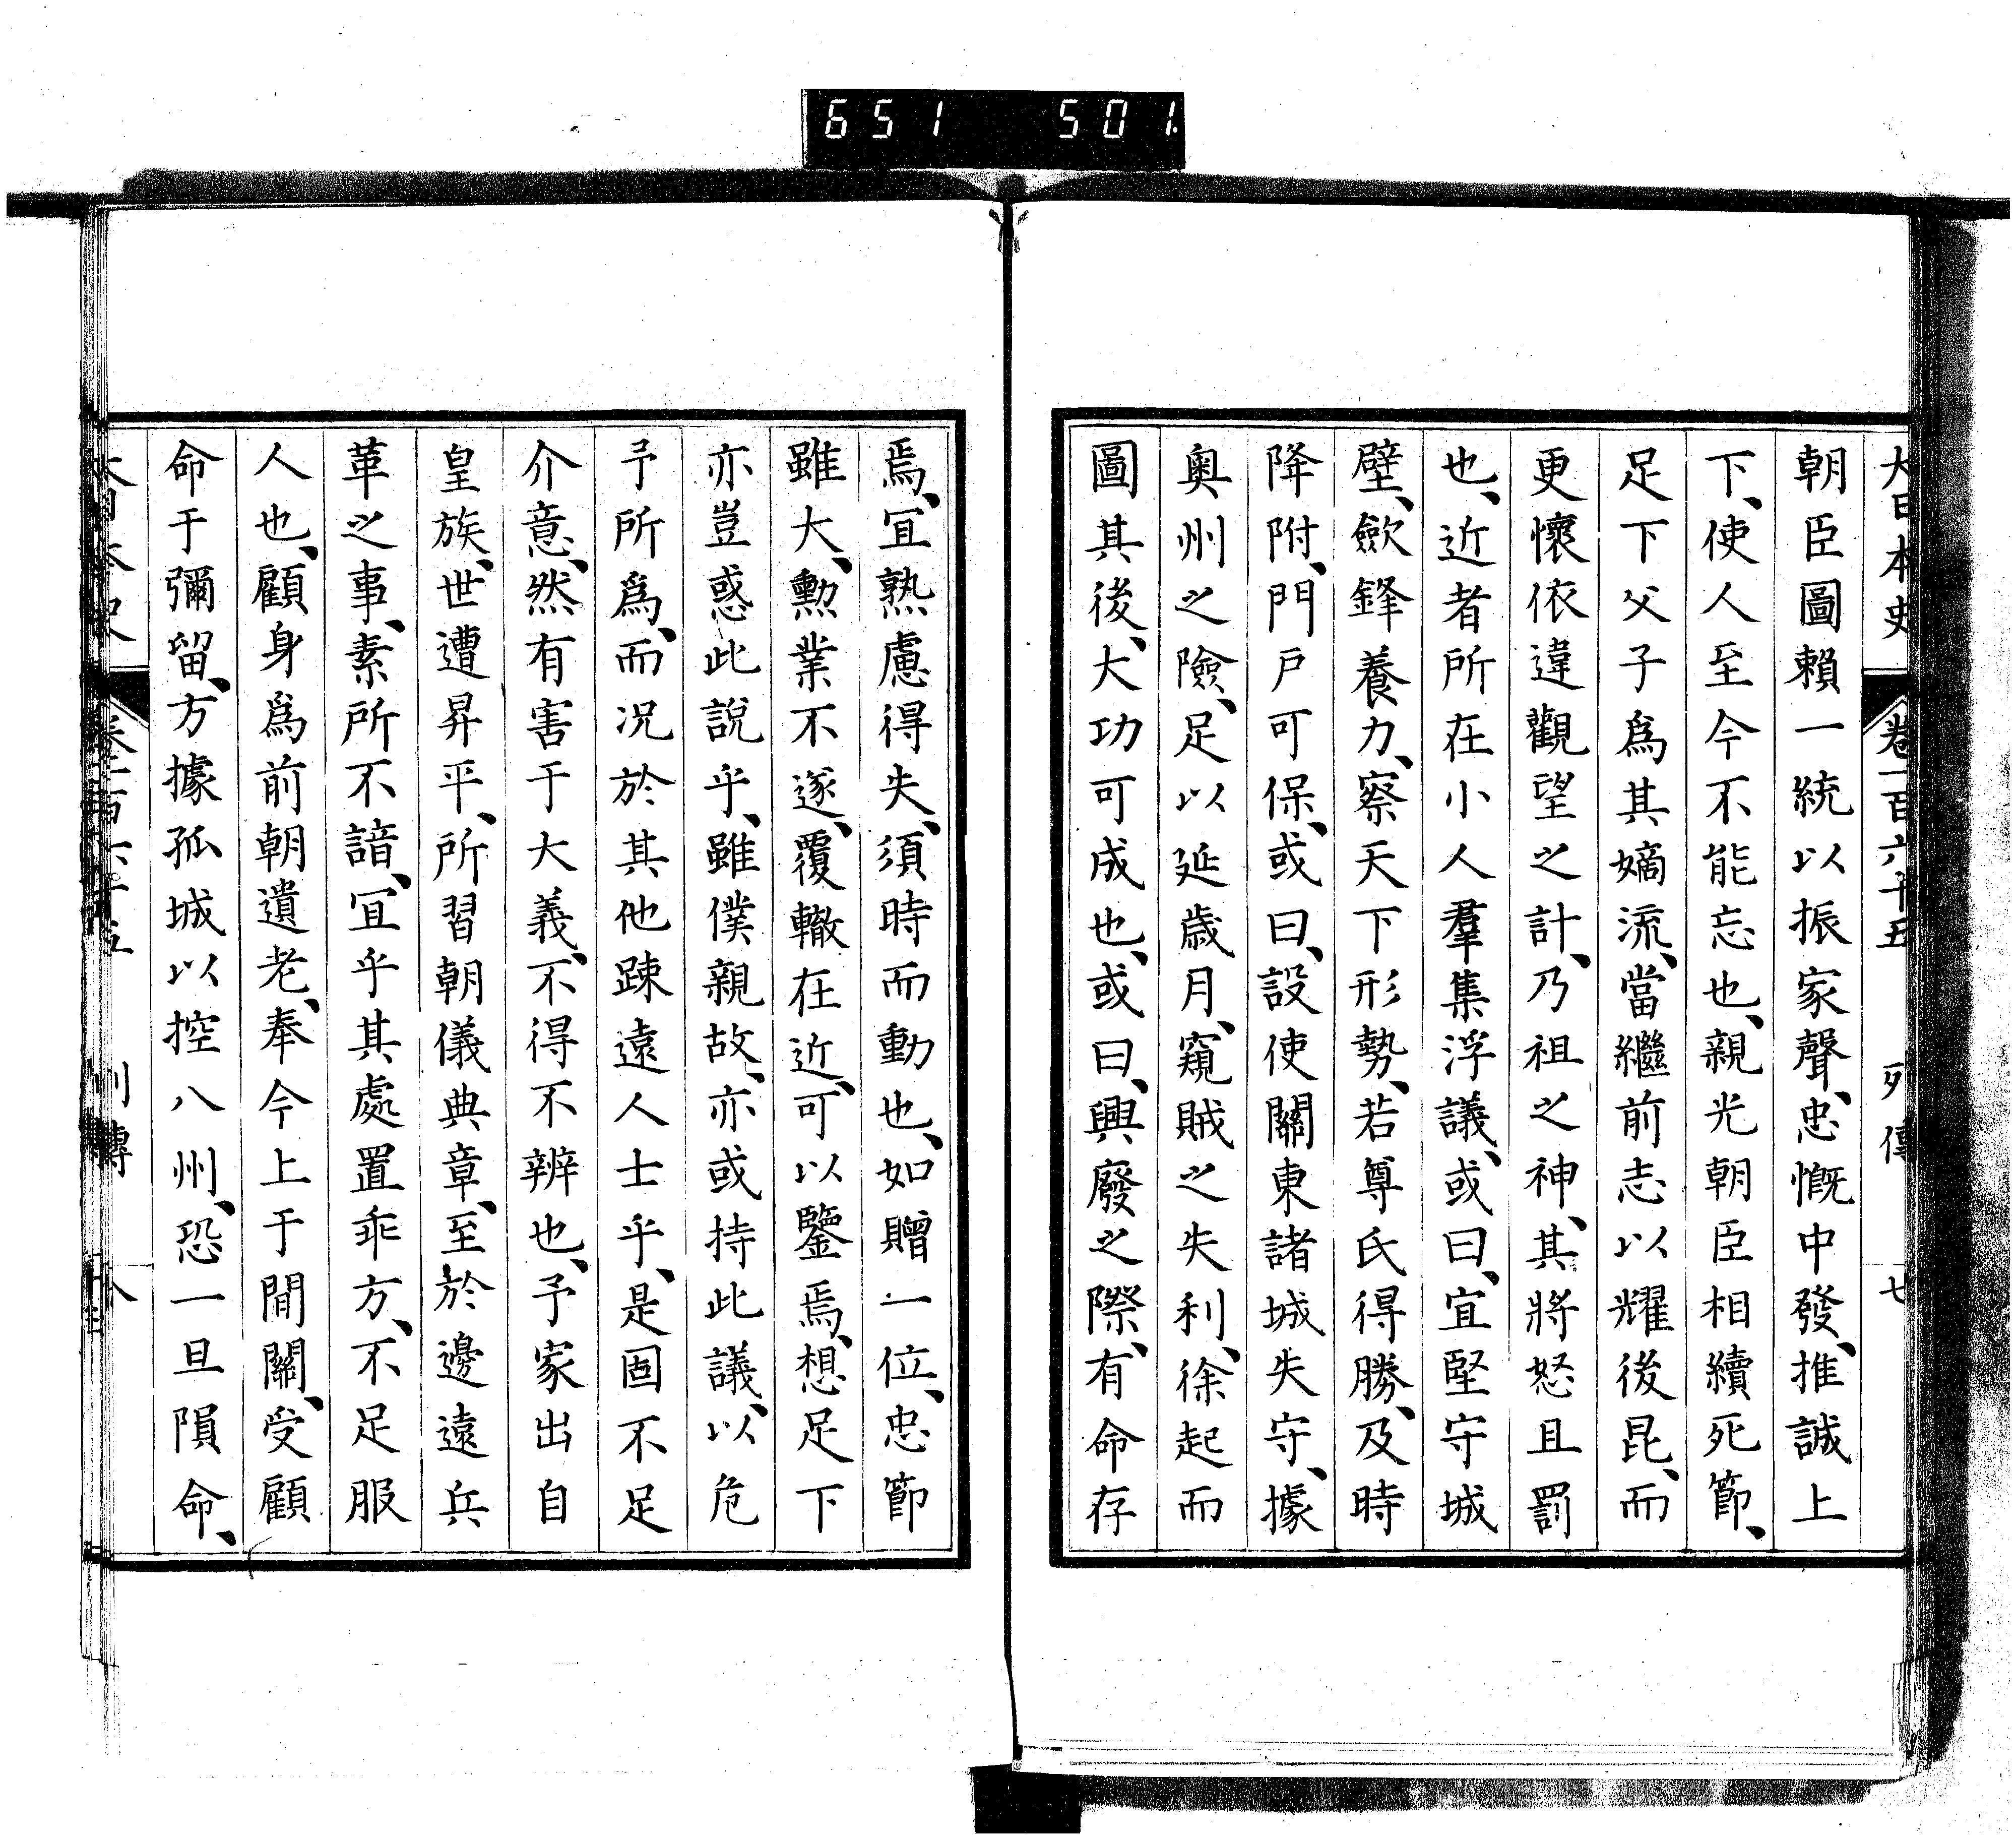 651 501
大日本史 卷一百六十五 列傳 七
朝臣圖賴一統以振家聲、忠慨中發、推誠上
下、使人至今不能忘也、親光朝臣相續死節、
足下父子爲其嫡流、當繼前志以耀後昆、而
更懷依違觀望之計、乃祖之神、其將怒且罰
也、近者所在小人羣集浮議、或曰、宜堅守城
壁、斂鋒養力、察天下形勢、若尊氏得勝、及時
降附、門戸可保、或曰、設使關東諸城失守、據
奧州之險、足以延歲月、窺賊之失利、徐起而
圖其後、大功可成也、或曰、興廢之際、有命存
焉、宜熟慮得失、須時而動也、如贈一位、忠節
雖大、勲業不遂、覆轍在近、可以鑒焉、想足下
亦豈惑此說乎、雖僕親故、亦或持此議、以危
予所爲、而況於其他疎遠人士乎、是固不足
介意、然有害于大義、不得不辨也、予家出自
皇族、世遭昇平、所習朝儀典章、至於邊遠兵
革之事、素所不諳、宜乎其處置乖方、不足服
人也、顧身爲前朝遺老、奉今上于間關、受顧
命于彌留、方據孤城以控八州、恐一旦隕命、